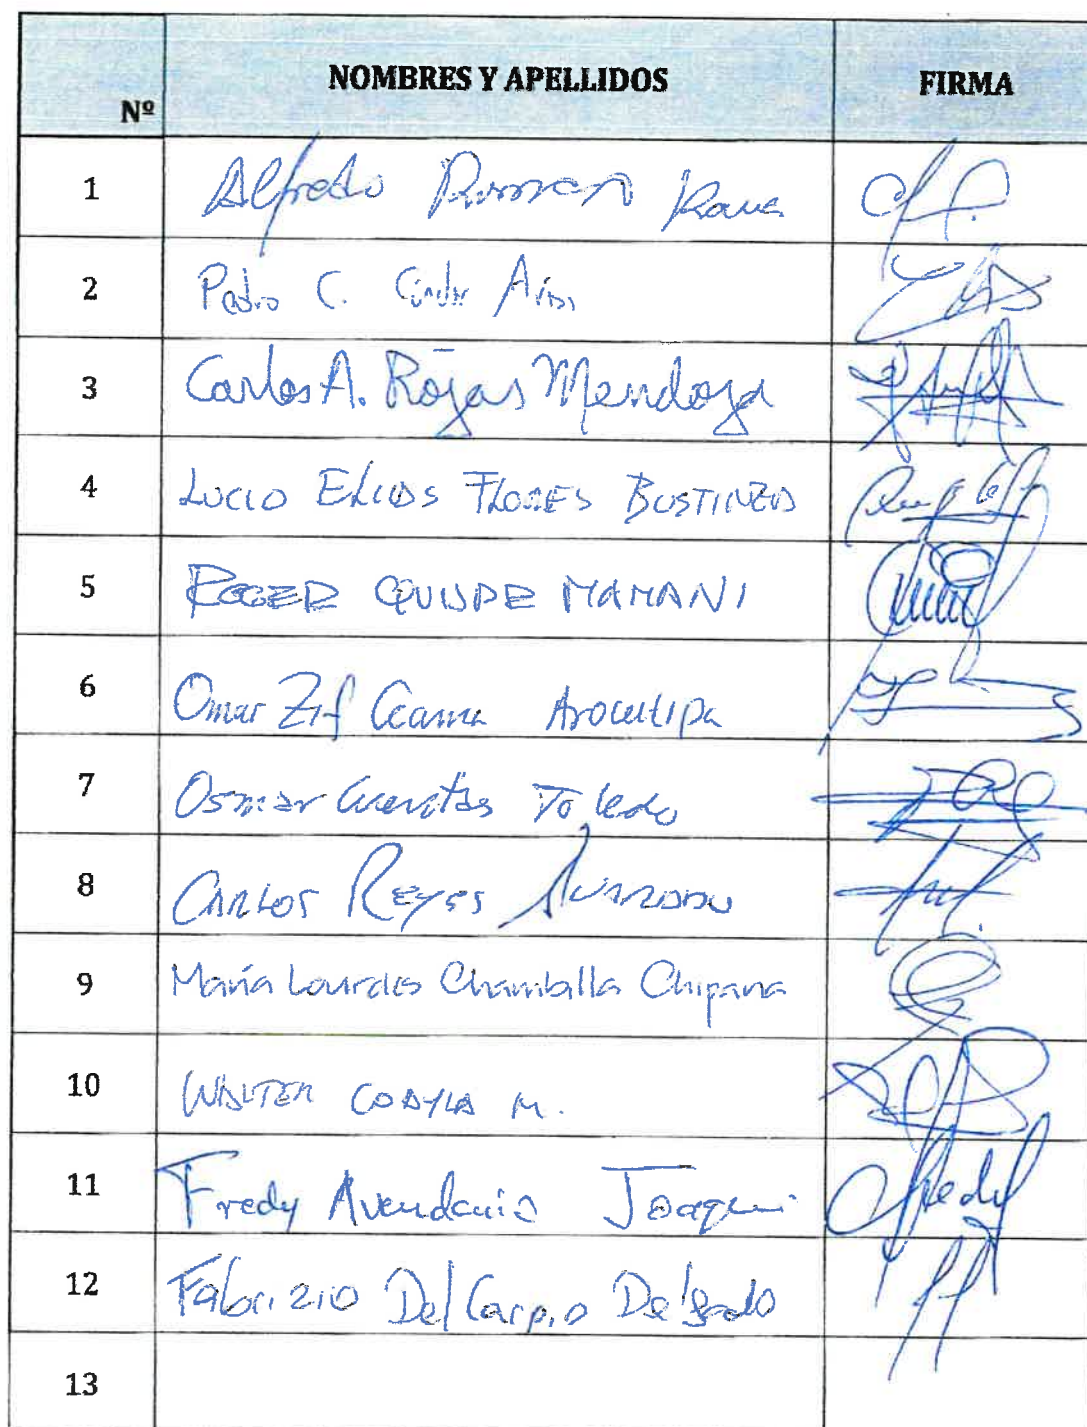 Nº NOMBRES Y APELLIDOS FIRMA
1 Alfredo Roman
2 Pedro C.
3 Carlos A. Rojas Mendoza
4 LUCIO ELIAS FLORES BUSTINZA
5 ROGER QUISPE MAMANI
6 Omar Zif Ccama Arocutipa
7 Osmar Cuentas Toledo
8 CARLOS REYES ALVARADO
9 María Lourdes Chamballa Chipana
10 WALTER COAYLA M.
11 Fredy Avendaño Joaquin
12 Fabrizio Del Carpio Delgado
13